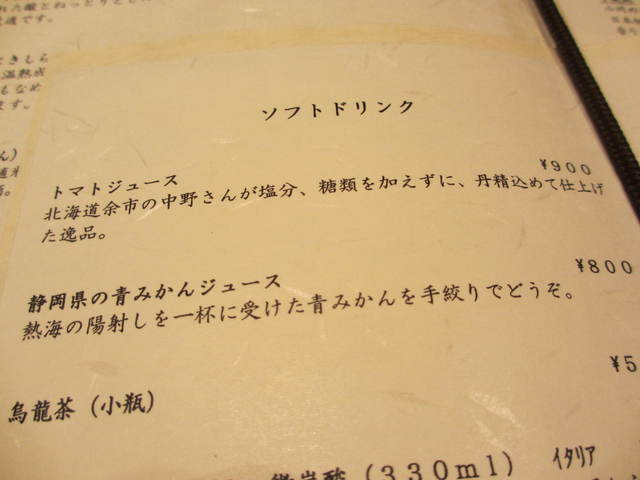 ソフトドリンク
トマトジュース ¥900
北海道余市の中野さんが塩分、糖類を加えずに、丹精込めて仕上げ
た逸品。
静岡県の青みかんジュース ¥800
熱海の陽射しを一杯に受けた青みかんを手絞りでどうぞ。
烏龍茶（小瓶） ¥5
（330ml） イタリア